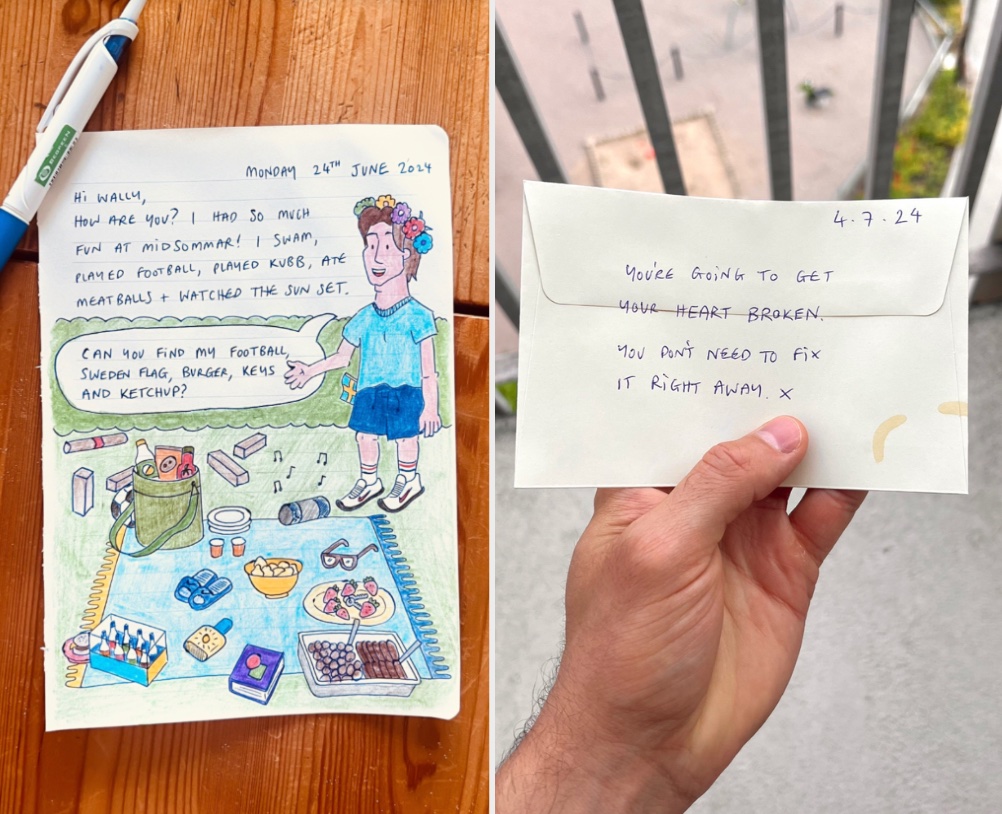 MONDAY 24TH JUNE 2024
Hi WALLY,
HOW ARE YOU? I HAD SO MUCH
FUN AT MIDSOMMAR! I SWAM,
PLAYED FOOTBALL, PLAYED KUBB, ATE
MEATBALLS + WATCHED THE SUN SET.
CAN YOU FIND MY FOOTBALL,
SWEDEN FLAG, BURGER, KEYS
AND KETCHUP?
4.7.24
YOU'RE GOING TO GET
YOUR HEART BROKEN.
YOU DON'T NEED TO FIX
IT RIGHT AWAY. X